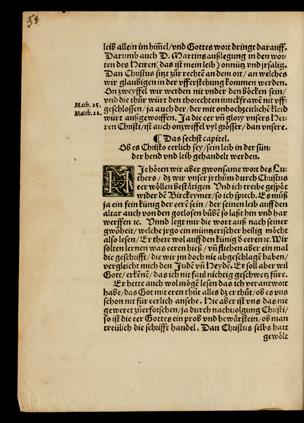 leib allein im himel / vnd Gottes wort dringt darauff.
Darumb auch D. Martins außlegung in den wor-
ten des Herren (das ist mein leib) onnütz vnd jrsalig.
Dan Christus sitz zůr rechtē an dem ort / an welches
wir vns glaubigen in der vfferstehung kommen werden.
On zweyffel wir werden nit vnder den böcken sein /
vnd die thür würt den thorechten junckfrawē nit vff-
Math. 25.
geschlossen / ja auch der / der mit onhochzeitlichē kleid
Math. 22.
würt außgeworffen. Ja die eer vñ glory vnsers Her
ren Christi / ist auch onzwiffel vyl grösser / dan vnsere.
¶ Das sechst capitel.
Ob es Christo eerlich sey / sein leib in der sün-
der hend vnd leib gehandelt werden.
hörten wir aber gwon sein wort des Lu-
thers / dz wir vnser jrthům durch Christus
eer wöllen bestätigen Vnd ich treibe gespöt
wider dē
ja ein sein künig der erē sein / der seinen leib auff den
altar auch von den gotlosen bůbē so laßt hin vnd har
werffen ꝛc.
gwöheit / welche jrgo ein münzerischer heilig möcht
also lesen / Er
solten lernen was eeren hieß / vñ fliehen aber ein mal
die geschrifft / die wir jm doch nie abgeschlagē haben /
vergleich mich den Judē vñ Heydē. Er soll aber wol
Gott / erkenē / das ich nit faul nichtzg geschwetz füre.
Er hette auch wol mögē lesen das ich verantwort
habe / das Got mit eren thůt alles dz er thůt / ob es vns
schon nit für eerlich ansehe. Hie aber ist vns das nie
geweret zůerforschen / ja durch nachuolgung Christi /
so ist die eer Gottes ein prob vnd bewärstein / ob man
treülich die schrifft handel. Dan Christus selbs hatt
gewölt